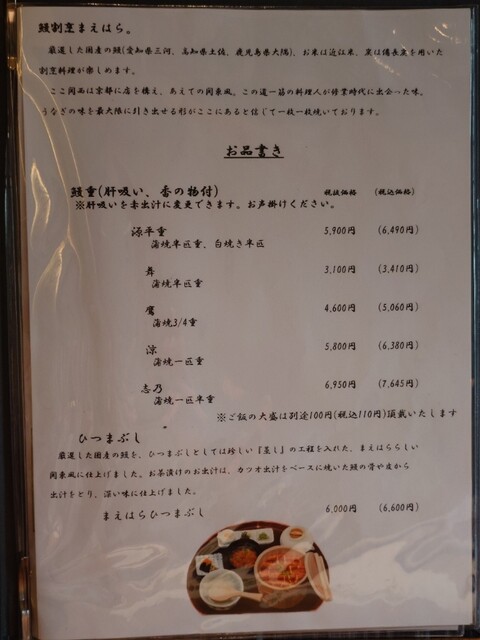 鰻割烹まえはら。
厳選した国産の鰻(愛知県三河、高知県土佐、鹿児島県大隅)、お米は近江米、炭は備長炭を用いた
割烹料理が楽しめます。
ここ関西は京都に店を構え、あえての関東風。この道一筋の料理人が修業時代に出会った味。
うなぎの味を最大限に引き出せる形がここにあると信じて一枚一枚焼いております。
お品書き
鰻重(肝吸い、香の物付) 税抜価格 (税込価格)
※肝吸いを赤出汁に変更できます。お声掛けください。
源平重 5,900円 (6,490円)
蒲焼半匹重、白焼き半匹
舞 3,100円 (3,410円)
蒲焼半匹重
鷹 4,600円 (5,060円)
蒲焼3/4重
涼 5,800円 (6,380円)
蒲焼一匹重
志乃 6,950円 (7,645円)
蒲焼一匹半重
※ご飯の大盛は別途100円(税込110円)頂戴いたします
ひつまぶし
厳選した国産の鰻を、ひつまぶしとしては珍しい『蒸し』の工程を入れた、まえはららしい
関東風に仕上げました。お茶漬けのお出汁は、カツオ出汁をベースに焼いた鰻の骨や皮から
出汁をとり、深い味に仕上げました。
まえはらひつまぶし 6,000円 (6,600円)